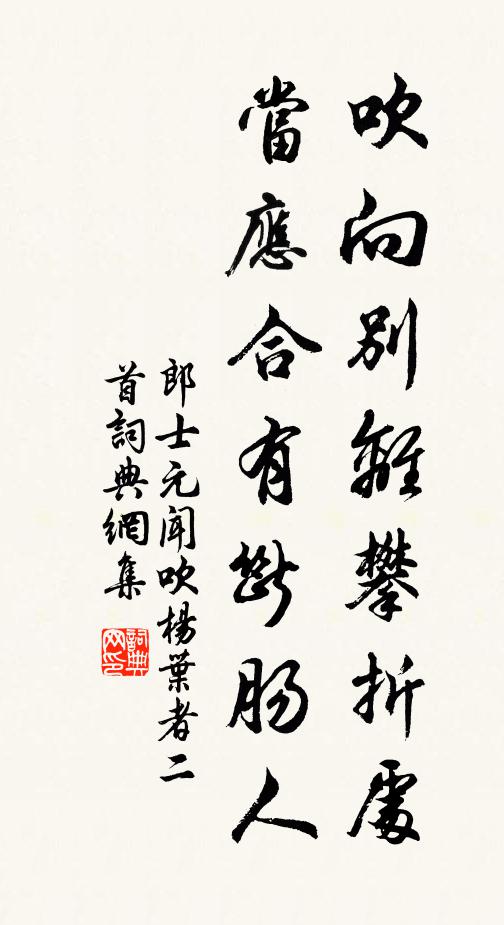 吹向別離攀折處
當應合有斷腸人
郎士元聞吹楊葉者二
首詞典網集
詞典网印